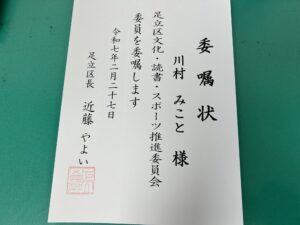 委嘱状
川村 みこと 様
足立区文化・読書・スポーツ推進委員会
委員を委嘱します
令和七年二月二十七日
足立区長 近藤 やよい